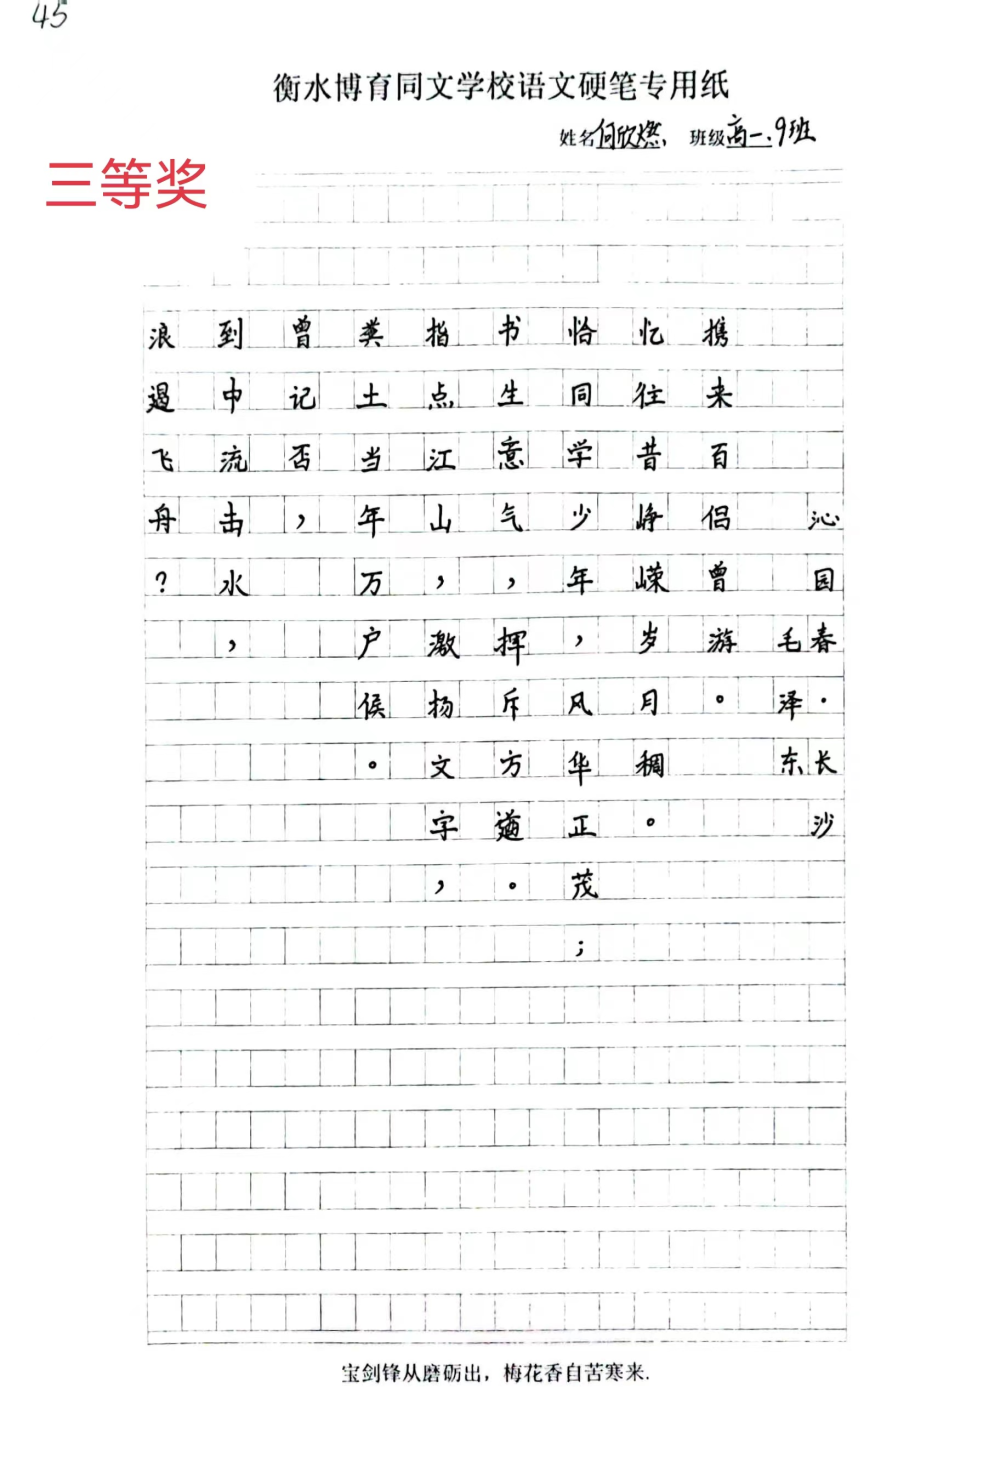 45
衡水博育同文学校语文硬笔专用纸
姓名何欣燃 班级高一.9班
三等奖
沁园春·长沙
毛泽东
携来百侣曾游。
忆往昔峥嵘岁月稠。
恰同学少年,风华正茂;
书生意气,挥斥方遒。
指点江山,激扬文字,
粪土当年万户侯。
曾记否,
到中流击水,
浪遏飞舟?
宝剑锋从磨砺出，梅花香自苦寒来.